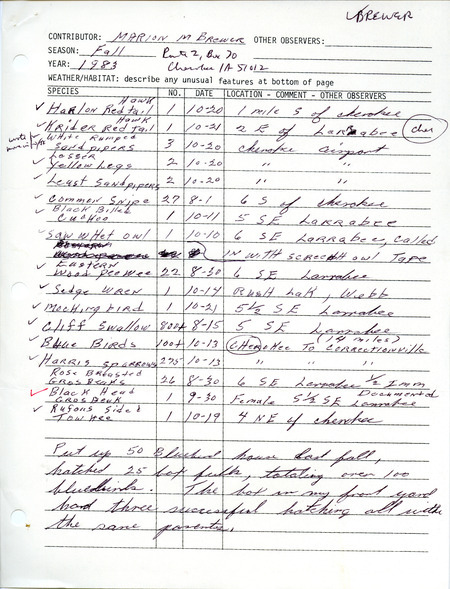 LBREWER
CONTRIBUTOR: MARION M BREWER OTHER OBSERVERS:
SEASON: Fall Route 2, Box 70
YEAR: 1983 Cherokee IA 51012
WEATHER/HABITAT: describe any unusual features at bottom of page
SPECIES NO. DATE LOCATION - COMMENT - OTHER OBSERVERS
Hawk
Harlon Red tail 1 10-20 1 mile S of cherokee
Hawk
Krider Red Tail 1 10-21 2 E of Larrabee Cher
White Rumped
Sandpipers 3 10-20 Cherokee Airport
Lesser
Yellow Legs 2 10-20 " "
Least Sandpipers 2 10-20 " "
Common Snipe 27 8-1 6 S of cherokee
Black Billed
Cuckoo 1 10-11 5 SE Larrabee
Saw Whet Owl 1 10-10 6 SE Larrabee, Called
IN WITH SCREECH OWL Tape
Eastern
Wood Peewee 22 8-30 6 SE Larrabee
Sedge Wren 1 10-14 Rush Lak, Webb
Mocking bird 1 10-21 5½ SE Larrabee
Cliff Swallow 800+ 8-15 5 SE Larrabee
(14 miles)
Blue Birds 100+ 10-13 Cherokee To Correctionville
Harris Sparrows 275 10-13 " "
Rose Breasted
Grosbeaks 26 8-30 6 SE Larrabee ½ Imm
Black Head Documented
Grosbeak 1 9-30 Female 5½ SE Larrabee
Rufous Sided
Towhee 1 10-19 4 NE of cherokee
Put up 50 Bluebird house last fall,
hatched 25 box fulls, totaling over 100
bluebirds. The box in my front yard
had three successful hatching all with
the same parents.